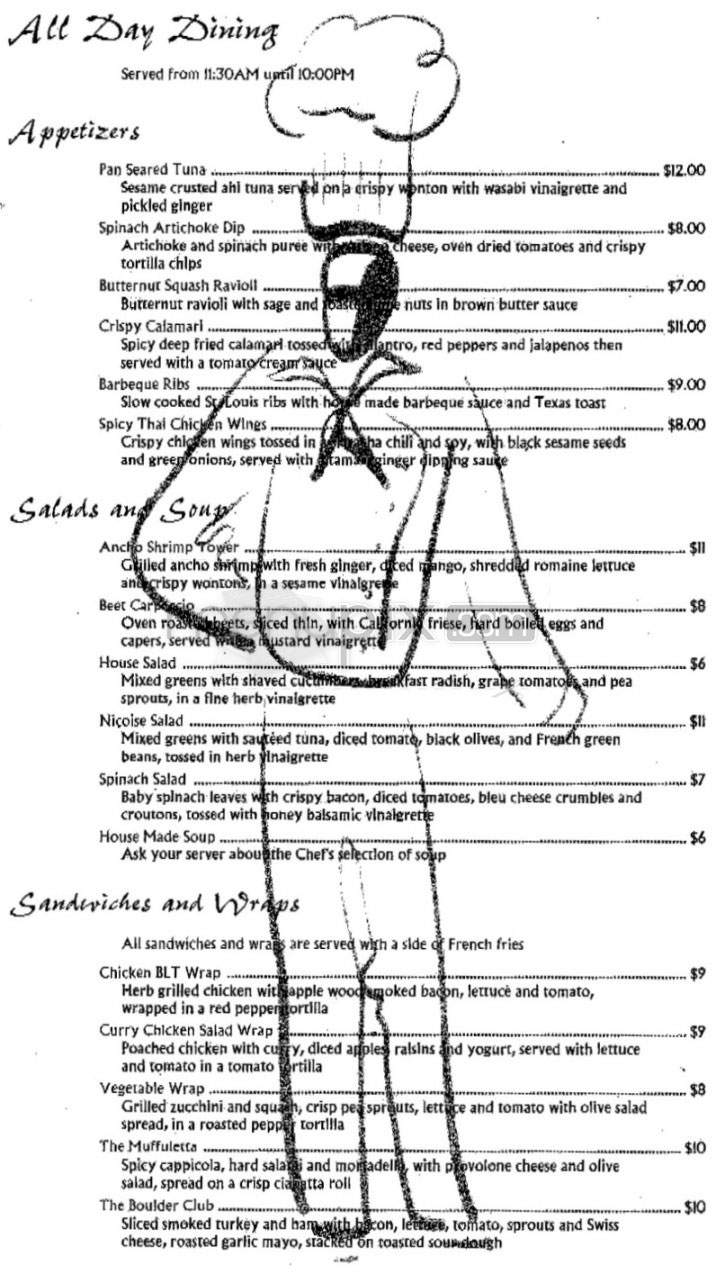 All Day Dining
Served from 11:30AM until 10:00PM
Appetizers
Pan Seared Tuna $12.00
Sesame crusted ahi tuna served on a crispy wonton with wasabi vinaigrette and
pickled ginger
Spinach Artichoke Dip $8.00
Artichoke and spinach puree with cheese, oven dried tomatoes and crispy
tortilla chips
Butternut Squash Ravioli $7.00
Butternut ravioli with sage and nuts in brown butter sauce
Crispy Calamari $11.00
Spicy deep fried calamari tossed with cilantro, red peppers and jalapenos then
served with a tomato cream sauce
Barbeque Ribs $9.00
Slow cooked St Louis ribs with house made barbeque sauce and Texas toast
Spicy Thai Chicken Wings $8.00
Crispy chicken wings tossed in chili and soy, with black sesame seeds
and green onions, served with ginger dipping sauce
Salads and Soup
Ancho Shrimp Tower $11
Grilled ancho shrimp with fresh ginger, diced mango, shredded romaine lettuce
and crispy wontons, in a sesame vinaigrette
Beet Carpaccio $8
Oven roasted beets, sliced thin, with California friese, hard boiled eggs and
capers, served with a mustard vinaigrette
House Salad $6
Mixed greens with shaved cucumbers, breakfast radish, grape tomatoes and pea
sprouts, in a fine herb vinaigrette
Niçoise Salad $11
Mixed greens with sautéed tuna, diced tomato, black olives, and French green
beans, tossed in herb vinaigrette
Spinach Salad $7
Baby spinach leaves with crispy bacon, diced tomatoes, bleu cheese crumbles and
croutons, tossed with honey balsamic vinaigrette
House Made Soup $6
Ask your server about the Chef's selection of soup
Sandwiches and Wraps
All sandwiches and wraps are served with a side of French fries
Chicken BLT Wrap $9
Herb grilled chicken with apple wood smoked bacon, lettuce and tomato,
wrapped in a red pepper tortilla
Curry Chicken Salad Wrap $9
Poached chicken with curry, diced apples, raisins and yogurt, served with lettuce
and tomato in a tomato tortilla
Vegetable Wrap $8
Grilled zucchini and squash, crisp pea sprouts, lettuce and tomato with olive salad
spread, in a roasted pepper tortilla
The Muffuletta $10
Spicy cappicola, hard salami and mortadella, with provolone cheese and olive
salad, spread on a crisp ciabatta roll
The Boulder Club $10
Sliced smoked turkey and ham with bacon, lettuce, tomato, sprouts and Swiss
cheese, roasted garlic mayo, stacked on toasted sourdough